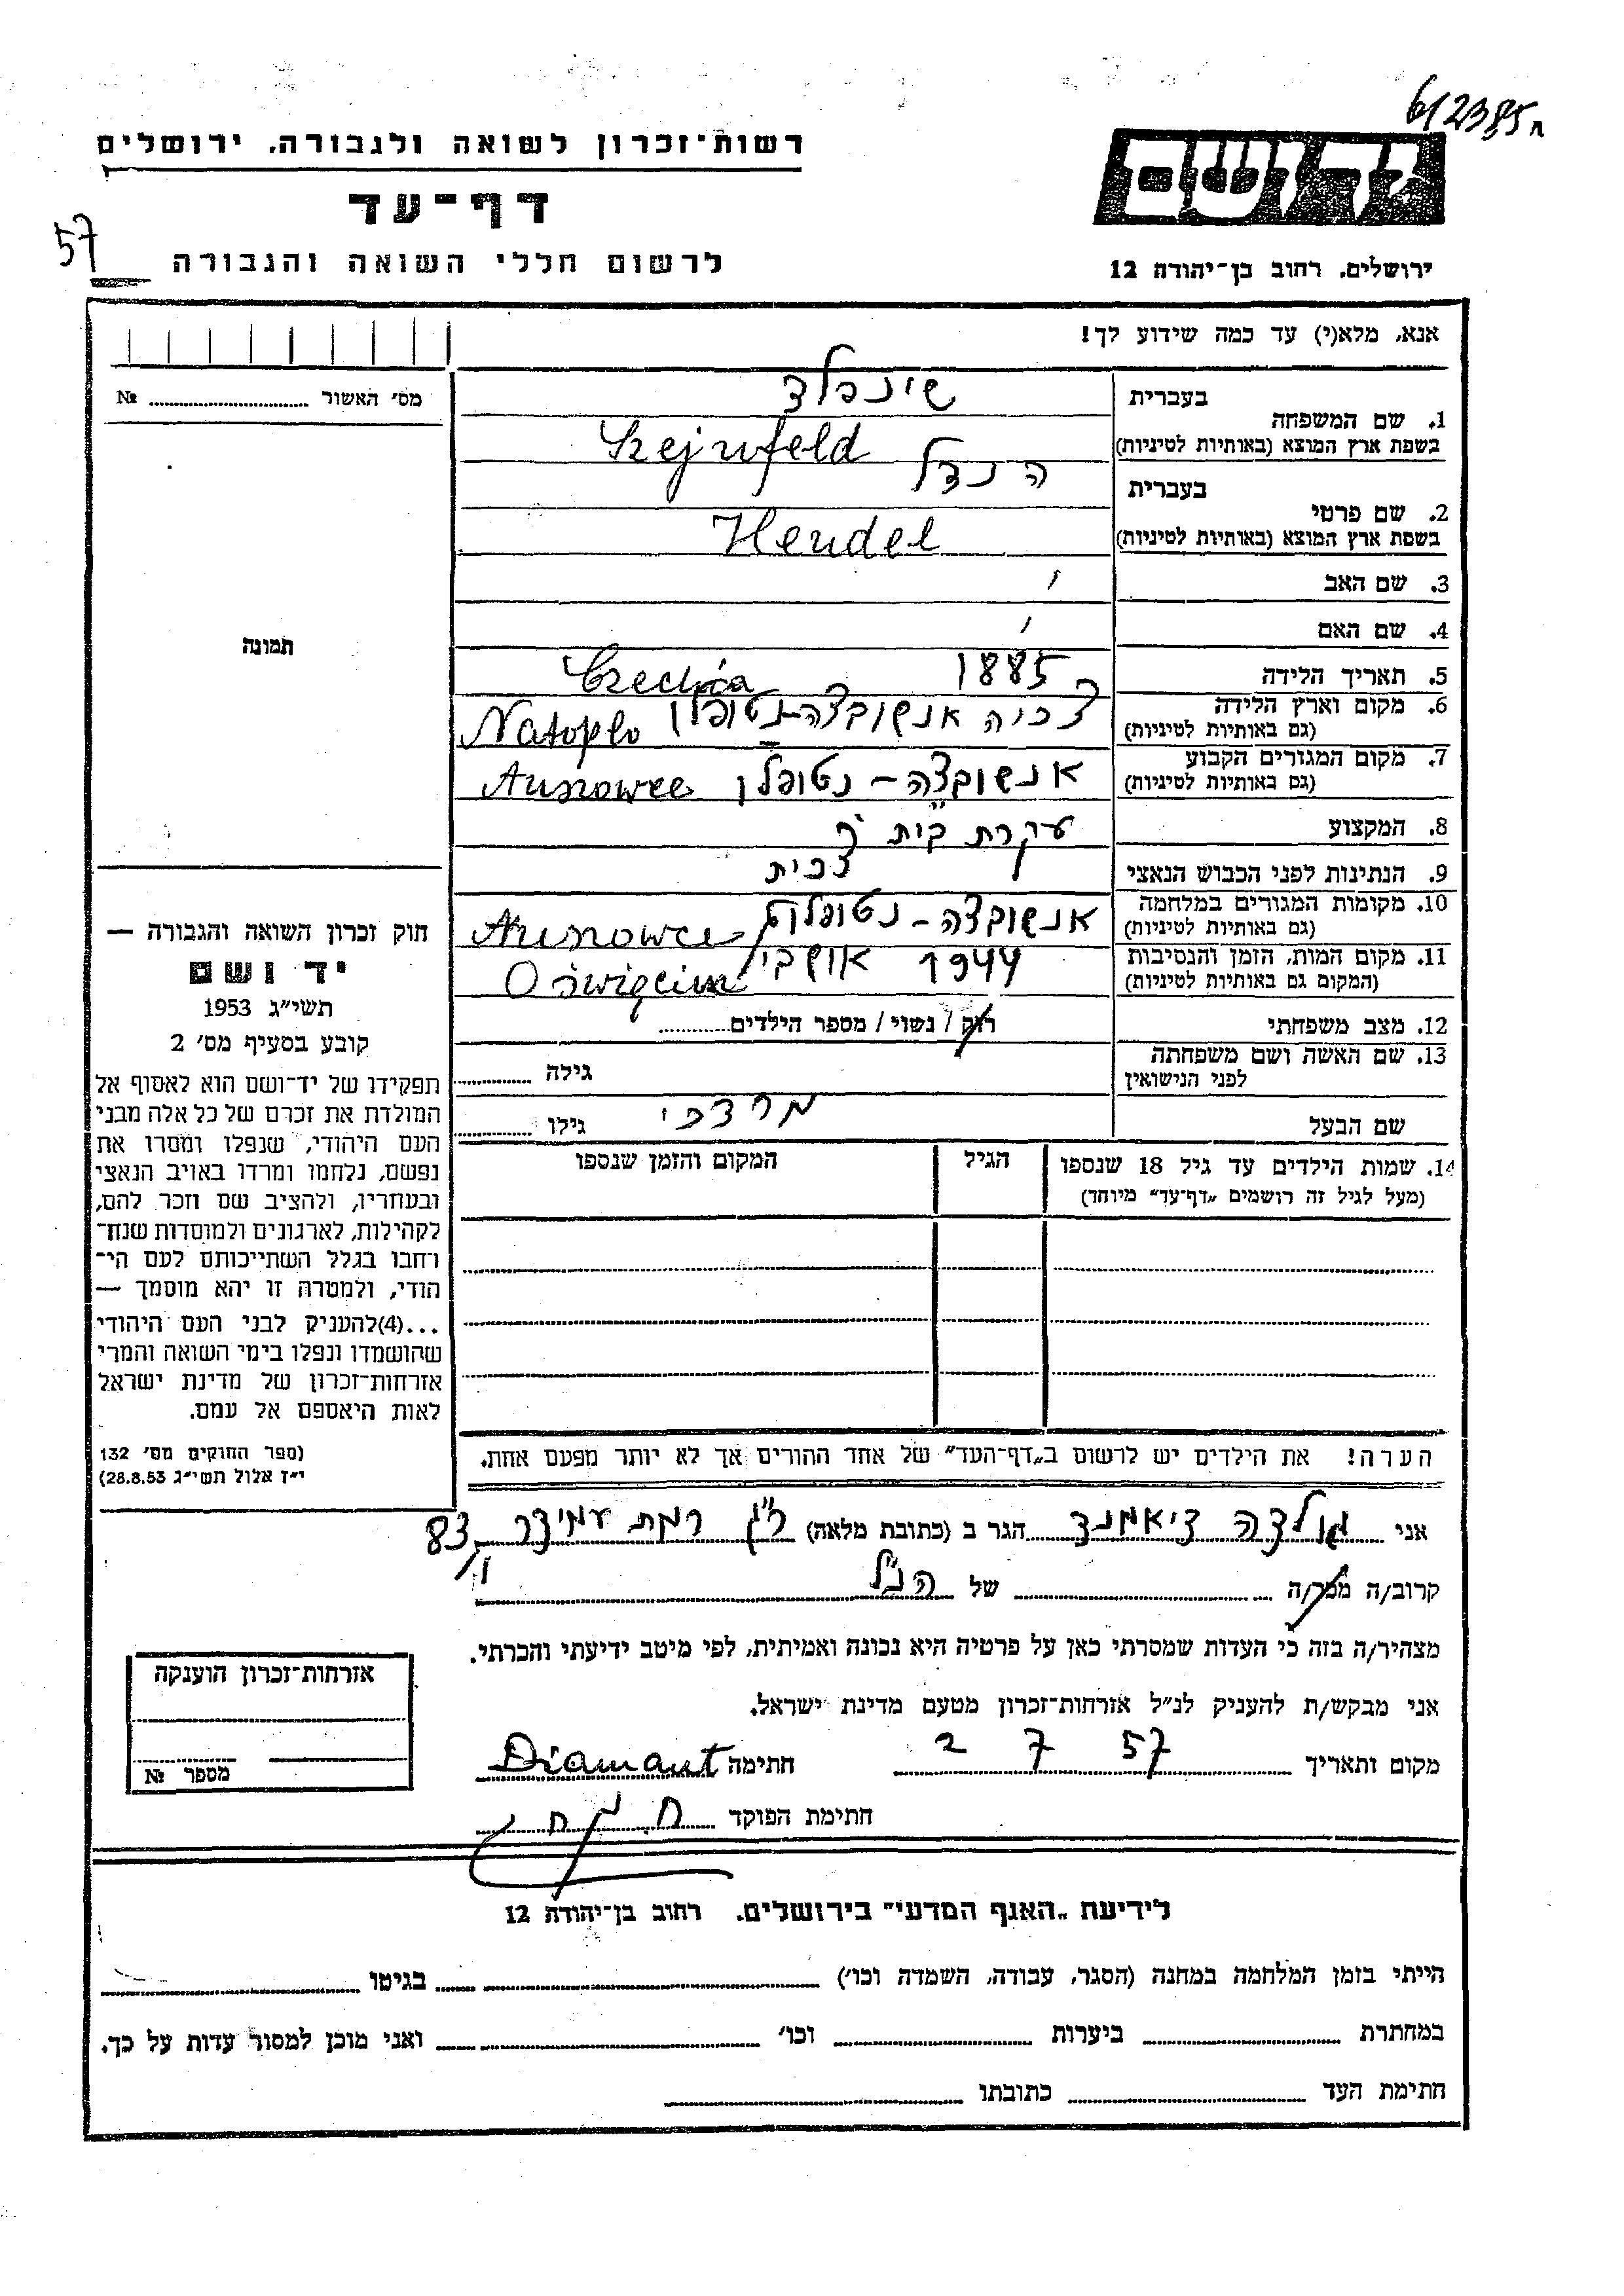 612385ח
יד ושם
ירושלים, רחוב בן־יהודה 12
רשות־זכרון לשואה ולגבורה, ירושלים
דף־עד
לרשום חללי השואה והגבורה
57
אנא, מלא(י) עד כמה שידוע לך!
מס׳ האשור ........ №
תמונה
1. שם המשפחה
בעברית שינפלד
בשפת ארץ המוצא (באותיות לטיניות) Szejnfeld
2. שם פרטי
בעברית הנדל
בשפת ארץ המוצא (באותיות לטיניות) Hendel
3. שם האב
4. שם האם
5. תאריך הלידה 1885
6. מקום וארץ הלידה
(גם באותיות לטיניות) צכיה אנשובצה־נטופלן Natoplo
7. מקום המגורים הקבוע
(גם באותיות לטיניות) אנשובצה – נטופלן
8. המקצוע עקרת בית
9. הנתינות לפני הכבוש הנאצי צכית
10. מקומות המגורים במלחמה
(גם באותיות לטיניות) אנשובצה – נטופלן
11. מקום המות, הזמן והנסיבות
(המקום גם באותיות לטיניות) 1944 Oświęcim
12. מצב משפחתי רוק / נשוי / מספר הילדים
13. שם האשה ושם משפחתה
לפני הנישואין גילה
שם הבעל מרדכי גילו
14. שמות הילדים עד גיל 18 שנספו
(מעל לגיל זה רושמים „דף־עד״ מיוחד)
הגיל
המקום והזמן שנספו
הערה! את הילדים יש לרשום ב„דף־העד״ של אחד ההורים אך לא יותר מפעם אחת.
חוק זכרון השואה והגבורה —
יד ושם
תשי״ג 1953
קובע בסעיף מס׳ 2
תפקידו של יד־ושם הוא לאסוף אל
המולדת את זכרם של כל אלה מבני
העם היהודי, שנפלו ומסרו את
נפשם, נלחמו ומרדו באויב הנאצי
ובעוזריו, ולהציב שם וזכר להם,
לקהילות, לארגונים ולמוסדות שנח־
רבו בגלל השתייכותם לעם הי־
הודי, ולמטרה זו יהא מוסמך —
...(4)להעניק לבני העם היהודי
שהושמדו ונפלו בימי השואה והמרי
אזרחות־זכרון של מדינת ישראל
לאות היאספם אל עמם.
(ספר החוקים מס׳ 132
י״ז אלול תשי״ג 28.8.53)
אני גולדה דיאמנד הגר ב (כתובת מלאה) ר״ג רמת עמידר 83
קרוב/ה מכר/ה של הנ״ל
מצהיר/ה בזה כי העדות שמסרתי כאן על פרטיה היא נכונה ואמיתית, לפי מיטב ידיעתי והכרתי.
אני מבקש/ת להעניק לנ״ל אזרחות־זכרון מטעם מדינת ישראל.
מקום ותאריך 2 7 57 חתימה Diamant
חתימת הפוקד
אזרחות־זכרון הוענקה
מספר №
לידיעת „האגף המדעי״ בירושלים, רחוב בן־יהודה 12
הייתי בזמן המלחמה במחנה (הסגר, עבודה, השמדה וכו׳) בגיטו
במחתרת ביערות וכו׳ ואני מוכן למסור עדות על כך.
חתימת העד כתובתו